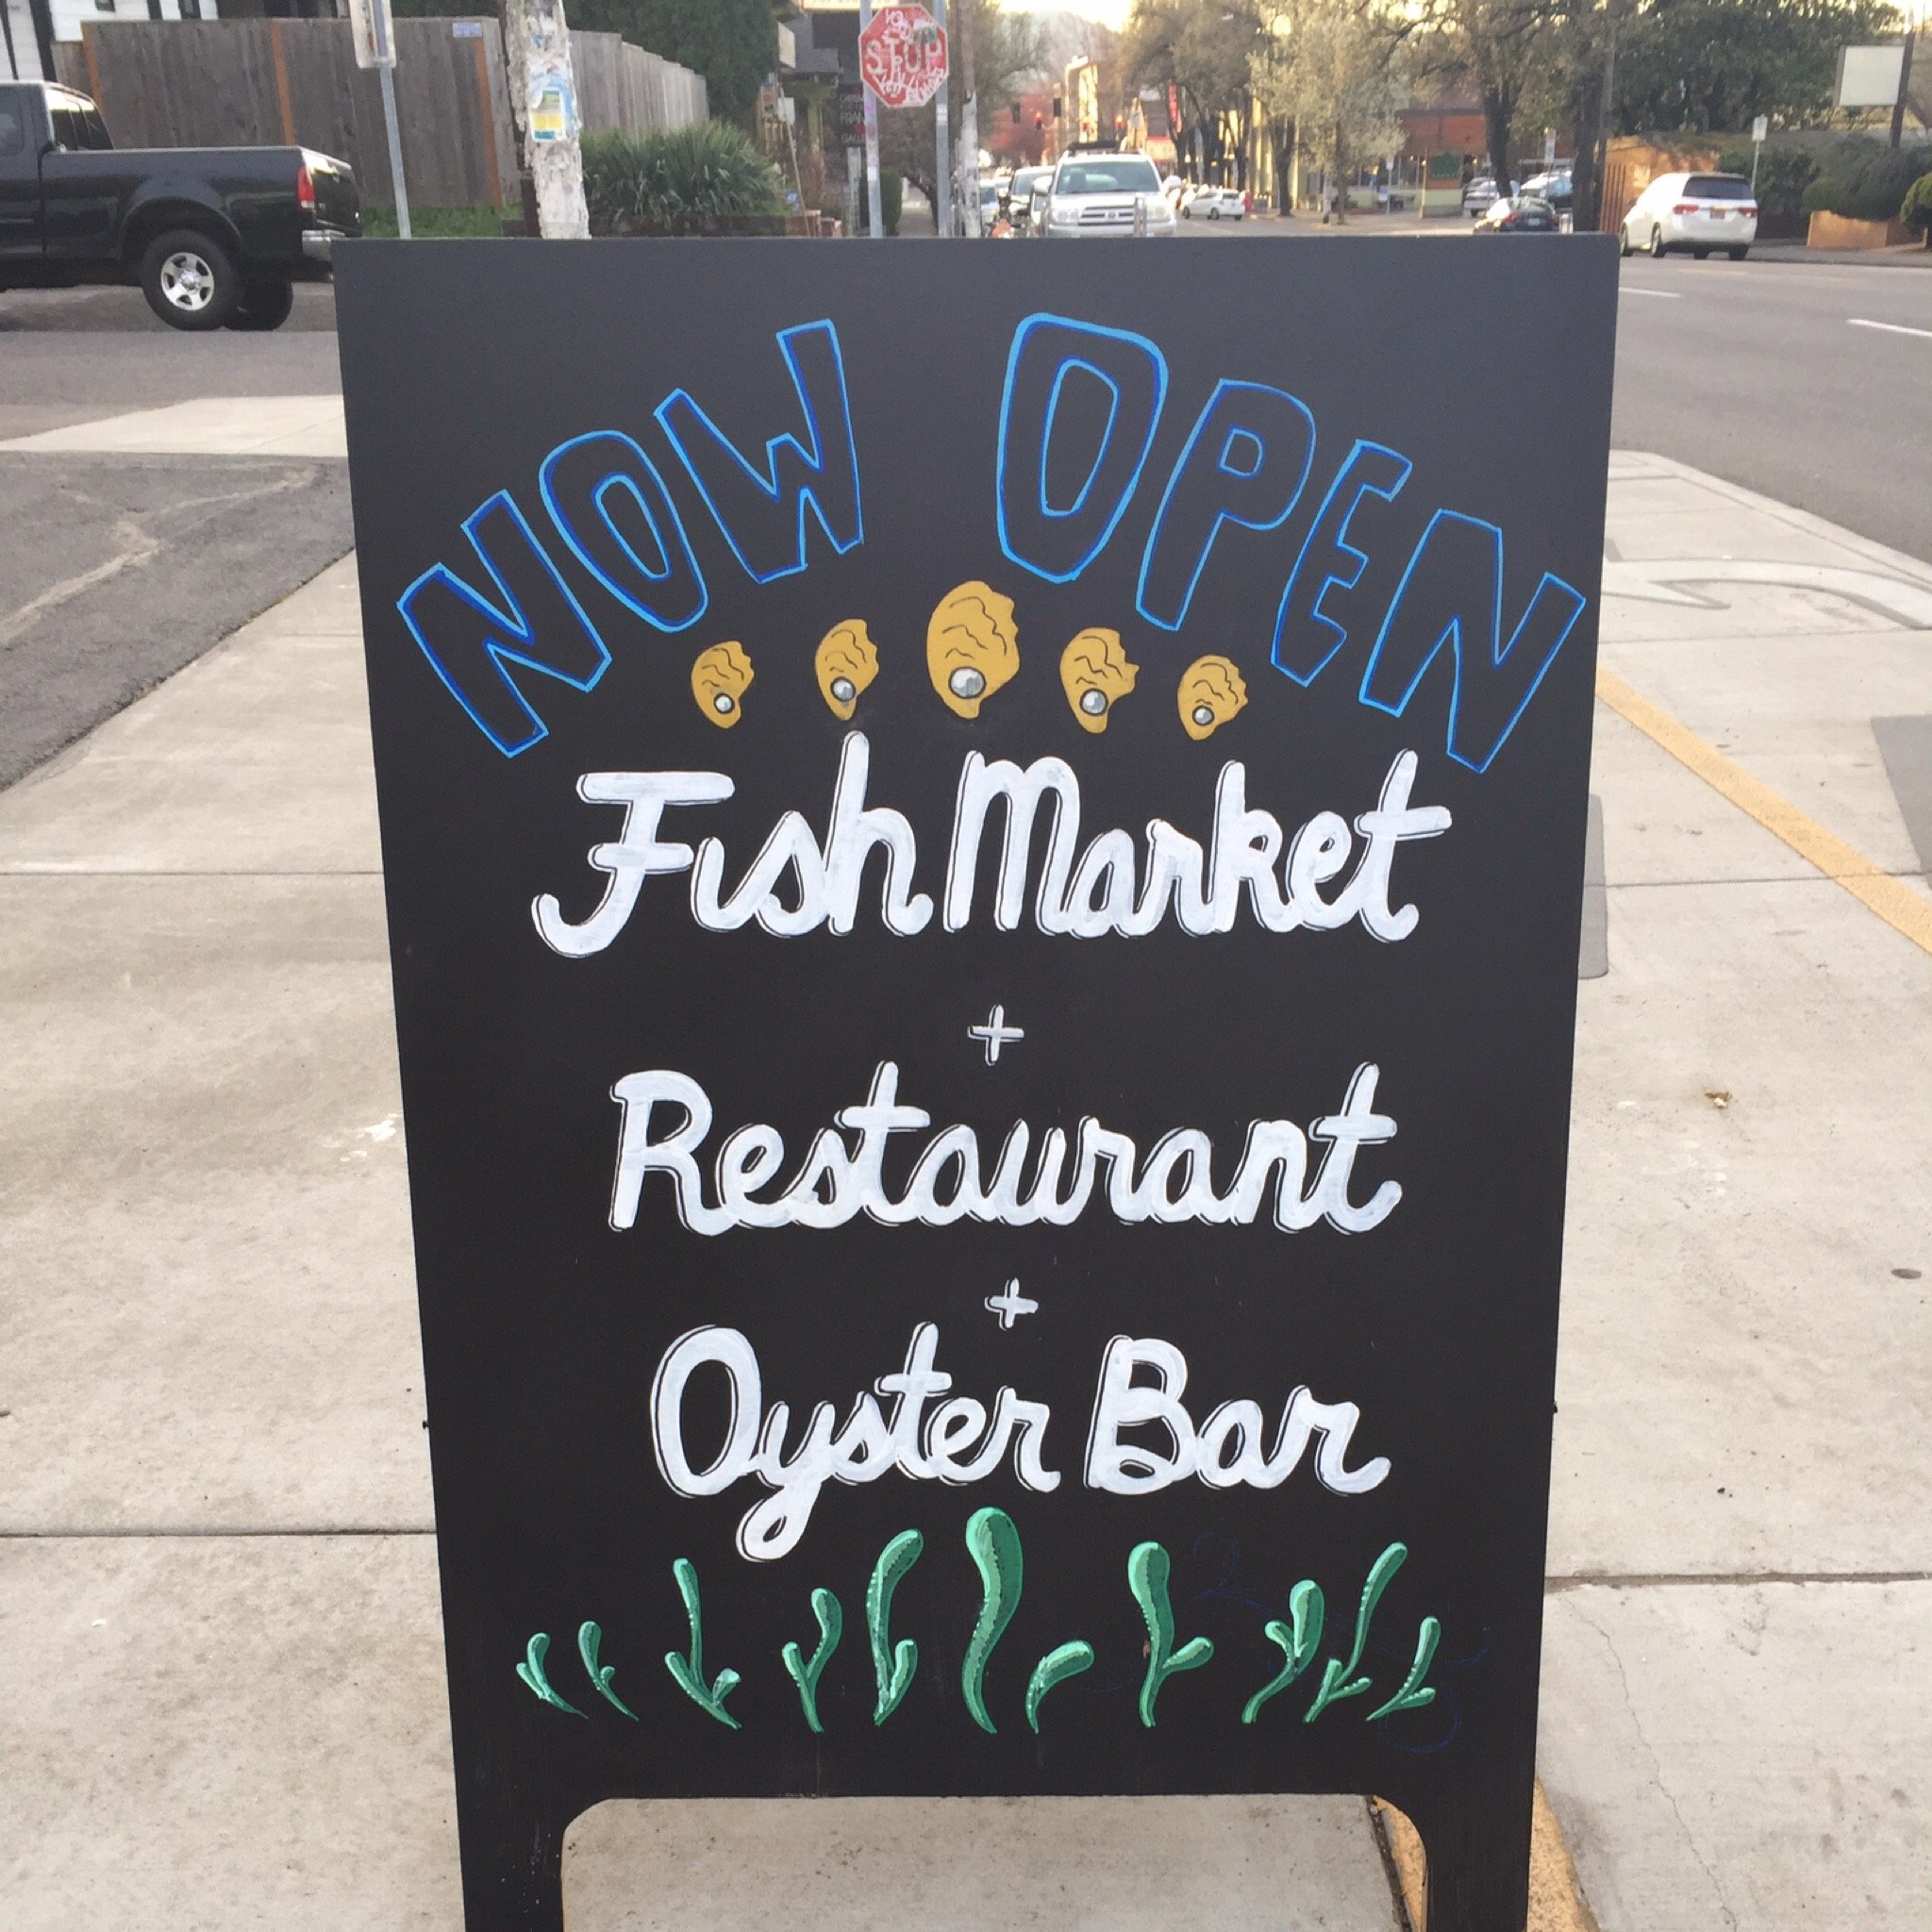 STOP
NOW OPEN
Fish Market
+
Restaurant
+
Oyster Bar